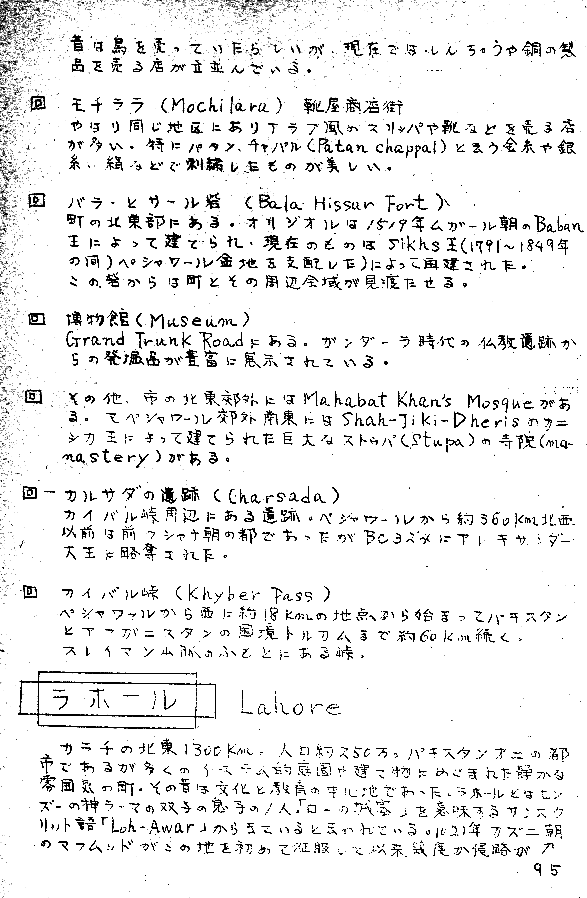 昔は鳥を売っていたらしいが、現在では、しんちゅうや銅の製
品を売る店が立並んでいる。
回 モチララ (Mochilara) 靴屋商店街
やはり同じ地区にありアラブ風のスリッパや靴などを売る店
が多い。特にパタン、チャパル(Patan chappal)と云う金糸や銀
糸、絹などで刺繍したものが美しい。
回 バラ・ヒサール砦 (Bala Hissur Fort)
町の北東部にある。オリジナルは1519年ムガール朝のBaban
王によって建てられ、現在のものは Sikhs王(1791〜1849年
の間)ペシャワール盆地を支配した)によって再建された。
この砦からは町とその周辺全域が見渡たせる。
回 博物館(Museum)
Grand Trunk Roadにある。ガンダーラ時代の仏教遺跡か
らの発掘品が豊富に展示されている。
回 その他、市の北東郊外には Mahabat Khan's Mosqueがあ
る。又ペシャワール郊外南東には Shah-Ji-Ki-Dherisのカニ
シカ王によって建てられた巨大なストゥパ(Stupa)の寺院(ma-
nastery)がある。
回 カルサダの遺跡 (Charsada)
カイバル峠周辺にある遺跡。ペシャワールから約360km北西
以前は前クシャナ朝の都であったがBC3
大王に略奪された。
回 カイバル峠 (Khyber Pass)
ペシャワールから西に約18kmの地点から始まってパキスタン
とアフガニスタンの国境トルカムまで約60km続く。
スレイマン山脈のふもとにある峠。
ラホール Lahore
カラチの北東1300Km。人口約250万。パキスタン才二の都
市であるが多くのイスラム的庭園や建て物にめぐまれた静かな
雰囲気の町。その昔は文化と教育の中心地であった。ラホールとはヒン
ズーの神ラーマの双子の息子の1人「ローの城塞」を意味するサンスク
リット語「Loh-Awar」からきていると云われている。1021年ガズニ朝
のマフムッドがこの地を初めて征服して以来幾度か侵略が
95